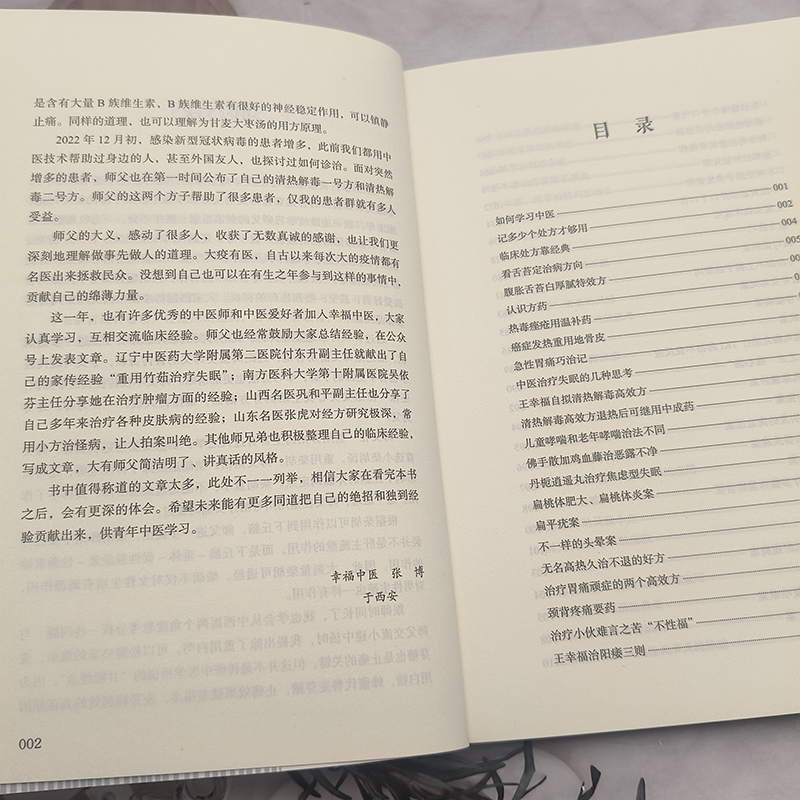 是含有大量 B 族维生素，B 族维生素有很好的神经稳定作用，可以镇静
止痛。同样的道理，也可以理解为甘麦大枣汤的用方原理。
2022 年 12 月初，感染新型冠状病毒的患者增多，此前我们都用中
医技术帮助过身边的人，甚至外国友人，也探讨过如何诊治。面对突然
增多的患者，师父也在第一时间公布了自己的清热解毒一号方和清热解
毒二号方。师父的这两个方子帮助了很多患者，仅我的患者群就有多人
受益。
师父的大义，感动了很多人，收获了无数真诚的感谢，也让我们更
深刻地理解做事先做人的道理。大疫有医，自古以来每次大的疫情都有
名医出来拯救民众。没想到自己也可以在有生之年参与到这样的事情中，
贡献自己的绵薄力量。
这一年，也有许多优秀的中医师和中医爱好者加入幸福中医，大家
认真学习，互相交流临床经验。师父也经常鼓励大家总结经验，在公众
号上发表文章。辽宁中医药大学附属第二医院付东升副主任就献出了自
己的家传经验“重用竹茹治疗失眠”；南方医科大学第十附属医院吴依
芬主任分享她在治疗肿瘤方面的经验；山西名医巩和平副主任也分享了
自己多年来治疗各种皮肤病的经验；山东名医张虎对经方研究极深，常
用小方治怪病，让人拍案叫绝。其他师兄弟也积极整理自己的临床经验，
写成文章，大有师父简洁明了、讲真话的风格。
书中值得称道的文章太多，此处不一一列举，相信大家在看完本书
之后，会有更深的体会。希望未来能有更多同道把自己的绝招和独到经
验贡献出来，供青年中医学习。
幸福中医 张 博
于西安
002
目 录
如何学习中医 001
记多少个处方才够用 002
临床处方靠经典 004
看舌苔定治病方向 005
腹胀舌苔白厚腻特效方
认识方药
热毒痤疮用温补药
癌症发热重用地骨皮
急性胃痛巧治记
中医治疗失眠的几种思考
王幸福自拟清热解毒高效方
清热解毒高效方退热后可继用中成药
儿童哮喘和老年哮喘治法不同
佛手散加鸡血藤治恶露不净
丹栀逍遥丸治疗焦虑型失眠
扁桃体肥大、扁桃体炎案
扁平疣案
不一样的头晕案
无名高热久治不退的好方
治疗胃痛顽症的两个高效方
颈背疼痛要药
治疗小伙难言之苦“不性福”
王幸福治阳痿三则